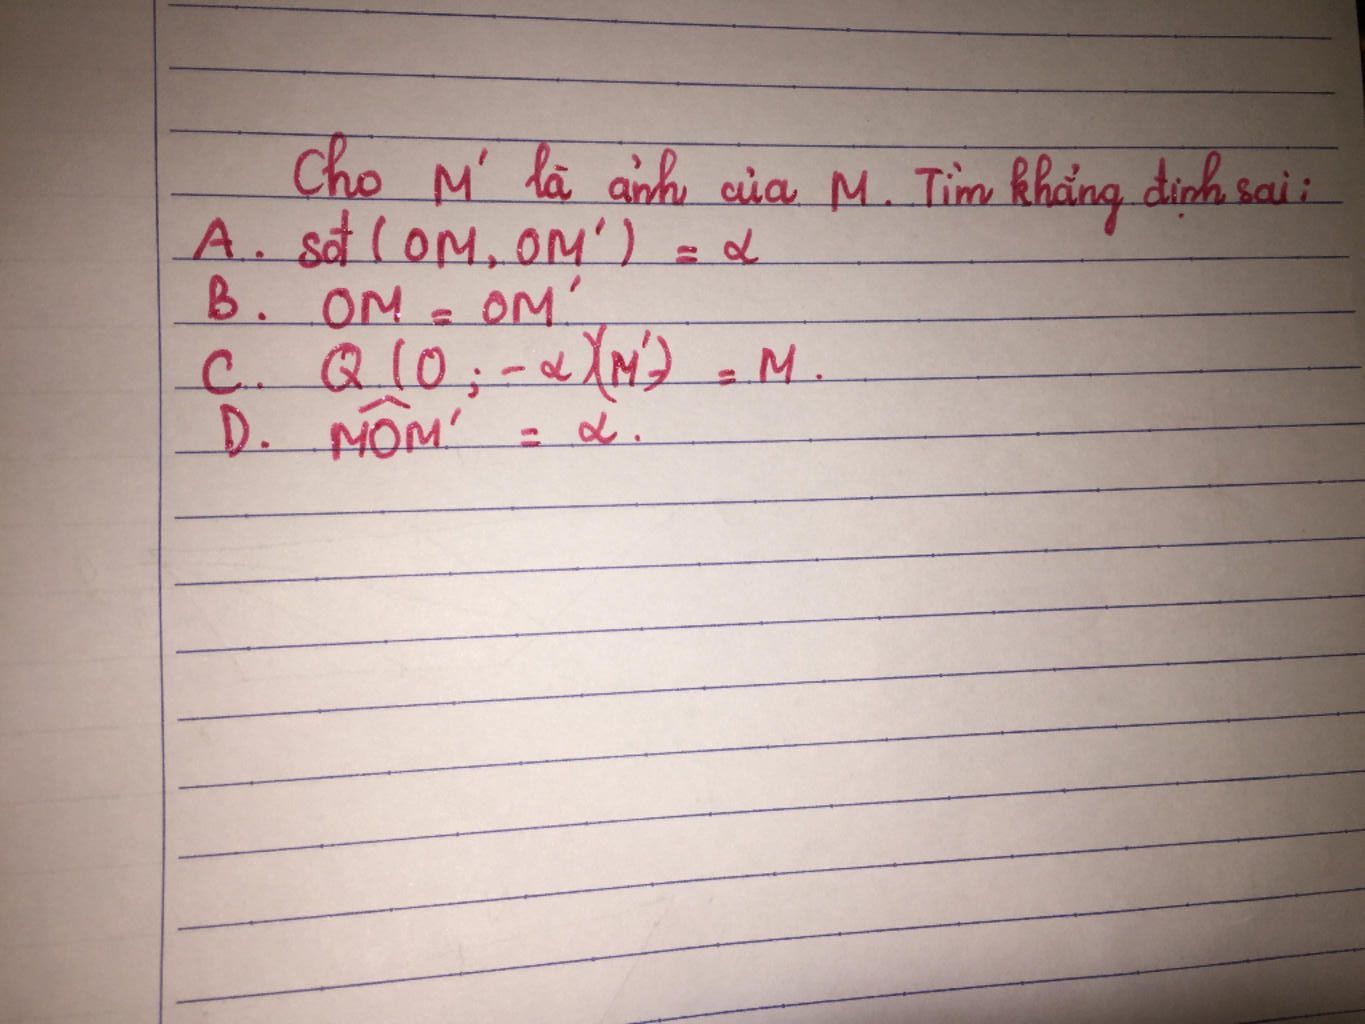 Cho M' là ảnh của M. Tìm khẳng định sai:
A. sđ (OM, OM') = α
B. OM = OM'
C. Q (O ; - α)(M') = M.
D. \widehat{MOM'} = α.